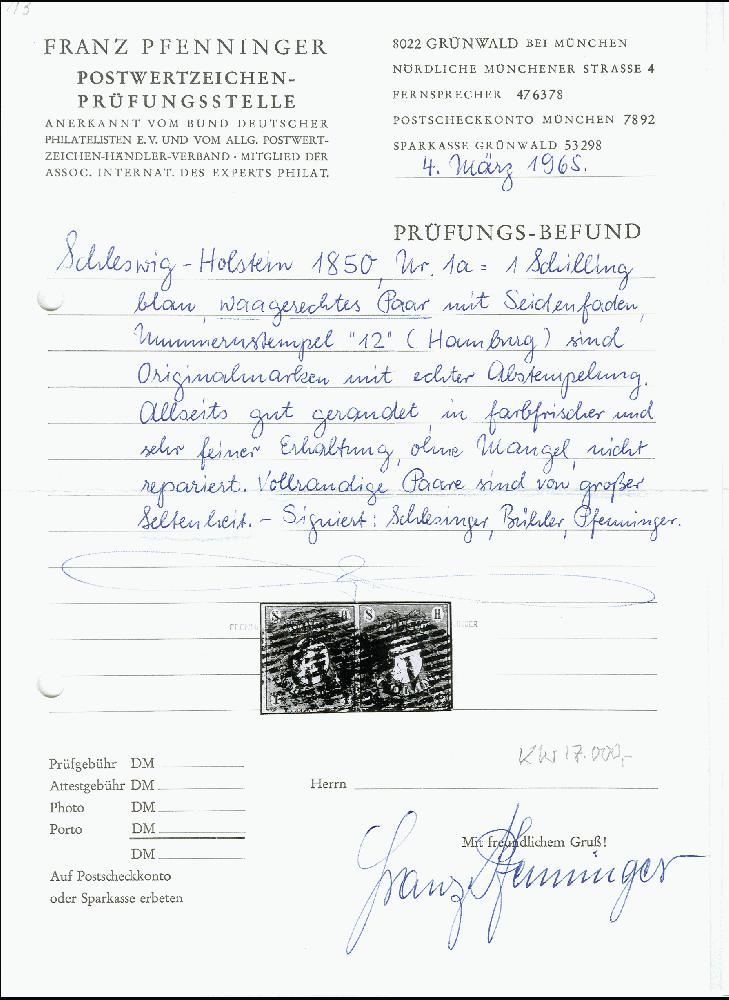 FRANZ PFENNINGER
POSTWERTZEICHEN-
PRÜFUNGSSTELLE
ANERKANNT VOM BUND DEUTSCHER
PHILATELISTEN E.V. UND VOM ALLG. POSTWERT-
ZEICHEN-HÄNDLER-VERBAND · MITGLIED DER
ASSOC. INTERNAT. DES EXPERTS PHILAT.
8022 GRÜNWALD BEI MÜNCHEN
NÖRDLICHE MÜNCHENER STRASSE 4
FERNSPRECHER 476378
POSTSCHECKKONTO MÜNCHEN 7892
SPARKASSE GRÜNWALD 53298
4. März 1965.
PRÜFUNGS-BEFUND
Schleswig-Holstein 1850, Nr. 1a = 1 Schilling
blau, waagerechtes Paar mit Seidenfaden,
Nummernstempel "12" (Hamburg) sind
Originalmarken mit echter Abstempelung.
Allseits gut gerandet, in farbfrischer und
sehr feiner Erhaltung, ohne Mängel, nicht
repariert. Vollrandige Paare sind von großer
Seltenheit. – Signiert: Schlesinger, Bühler, Pfenninger.
S H S H
Prüfgebühr DM
Attestgebühr DM
Photo DM
Porto DM
DM
Auf Postscheckkonto
oder Sparkasse erbeten
KW 17.000,-
Herrn
Mit freundlichem Gruß!
Franz Pfenninger